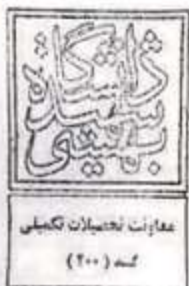 دانشگاه
شهید
بهشتی
معاونت تحصیلات تکمیلی
کد (۲۰۰)